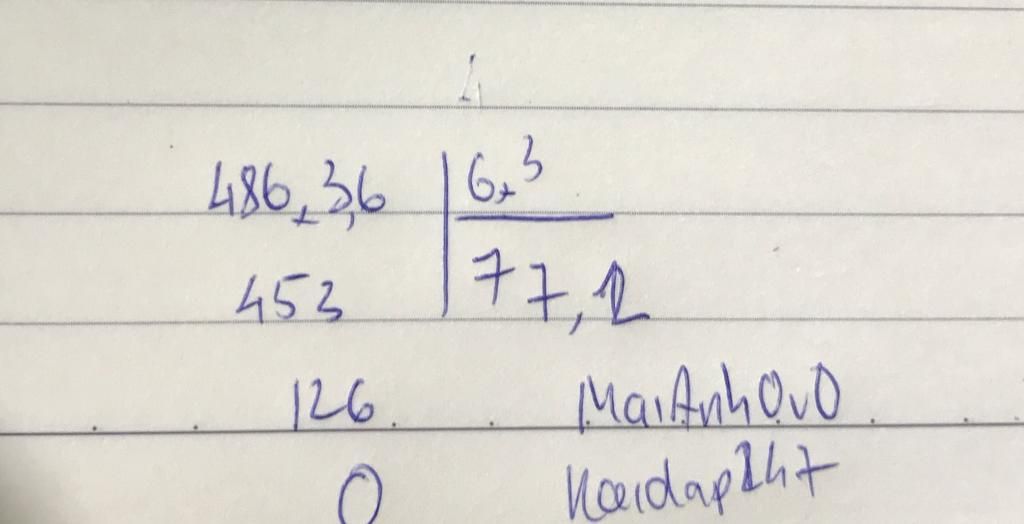 486,3,6 | 6,3
453 | 77,2
126 MaiAnhOvO
0 Hoidap247